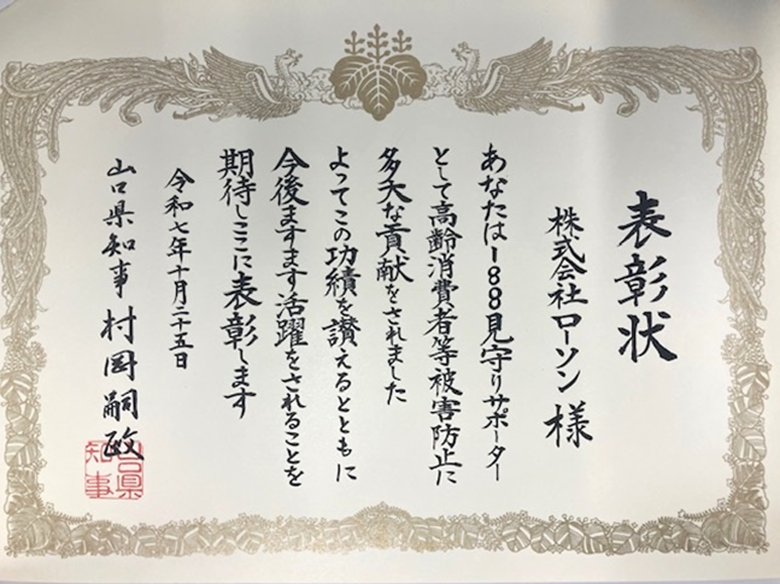 表彰状
株式会社ローソン 様
あなたは188見守りサポーター
として高齢消費者等被害防止に
多大な貢献をされました
よってこの功績を讃えるとともに
今後ますます活躍をされることを
期待しここに表彰します
令和七年十月二十五日
山口県知事 村岡嗣政
山口県
知事